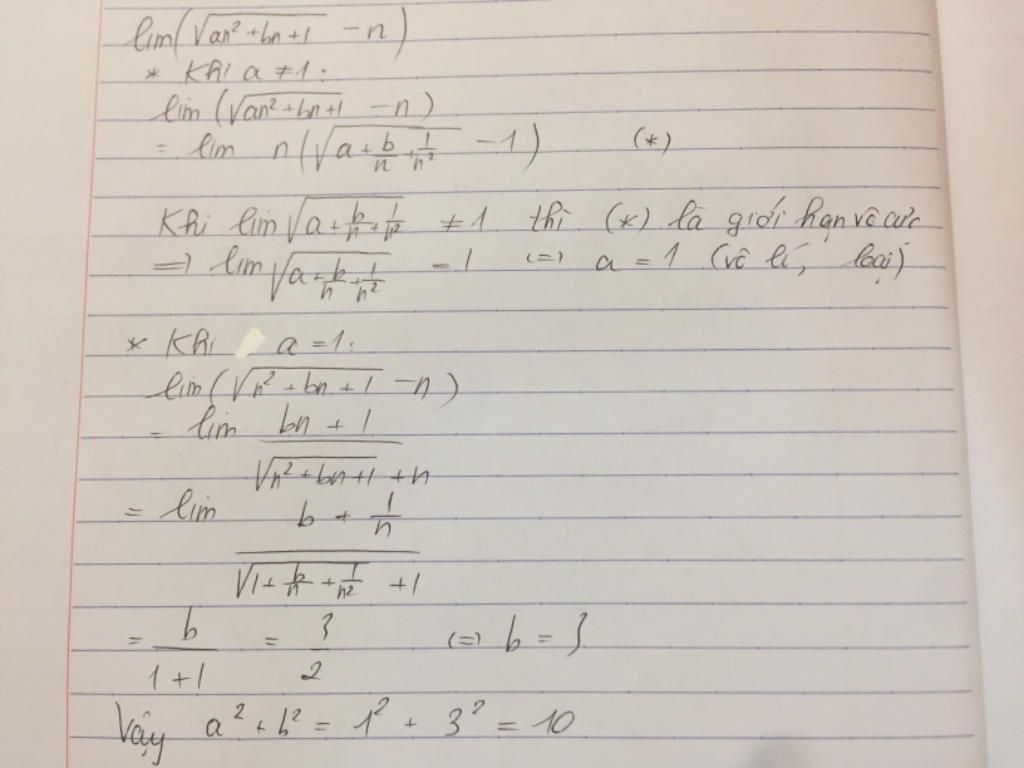 lim(√(an² + bn + 1) - n)
* Khi a ≠ 1:
lim (√(an² + bn + 1) - n)
= lim n(√(a + b/n + 1/n²) - 1) (*)
Khi lim √(a + b/n + 1/n²) ≠ 1 thì (*) là giới hạn vô cực
=> lim √(a + b/n + 1/n²) = 1 <=> a = 1 (vô lí, loại)
* Khi a = 1:
lim(√(n² + bn + 1) - n)
= lim (bn + 1)/(√(n² + bn + 1) + n)
= lim (b + 1/n)/(√(1 + b/n + 1/n²) + 1)
= b/(1 + 1) = 3/2 <=> b = 3
Vậy a² + b² = 1² + 3² = 10